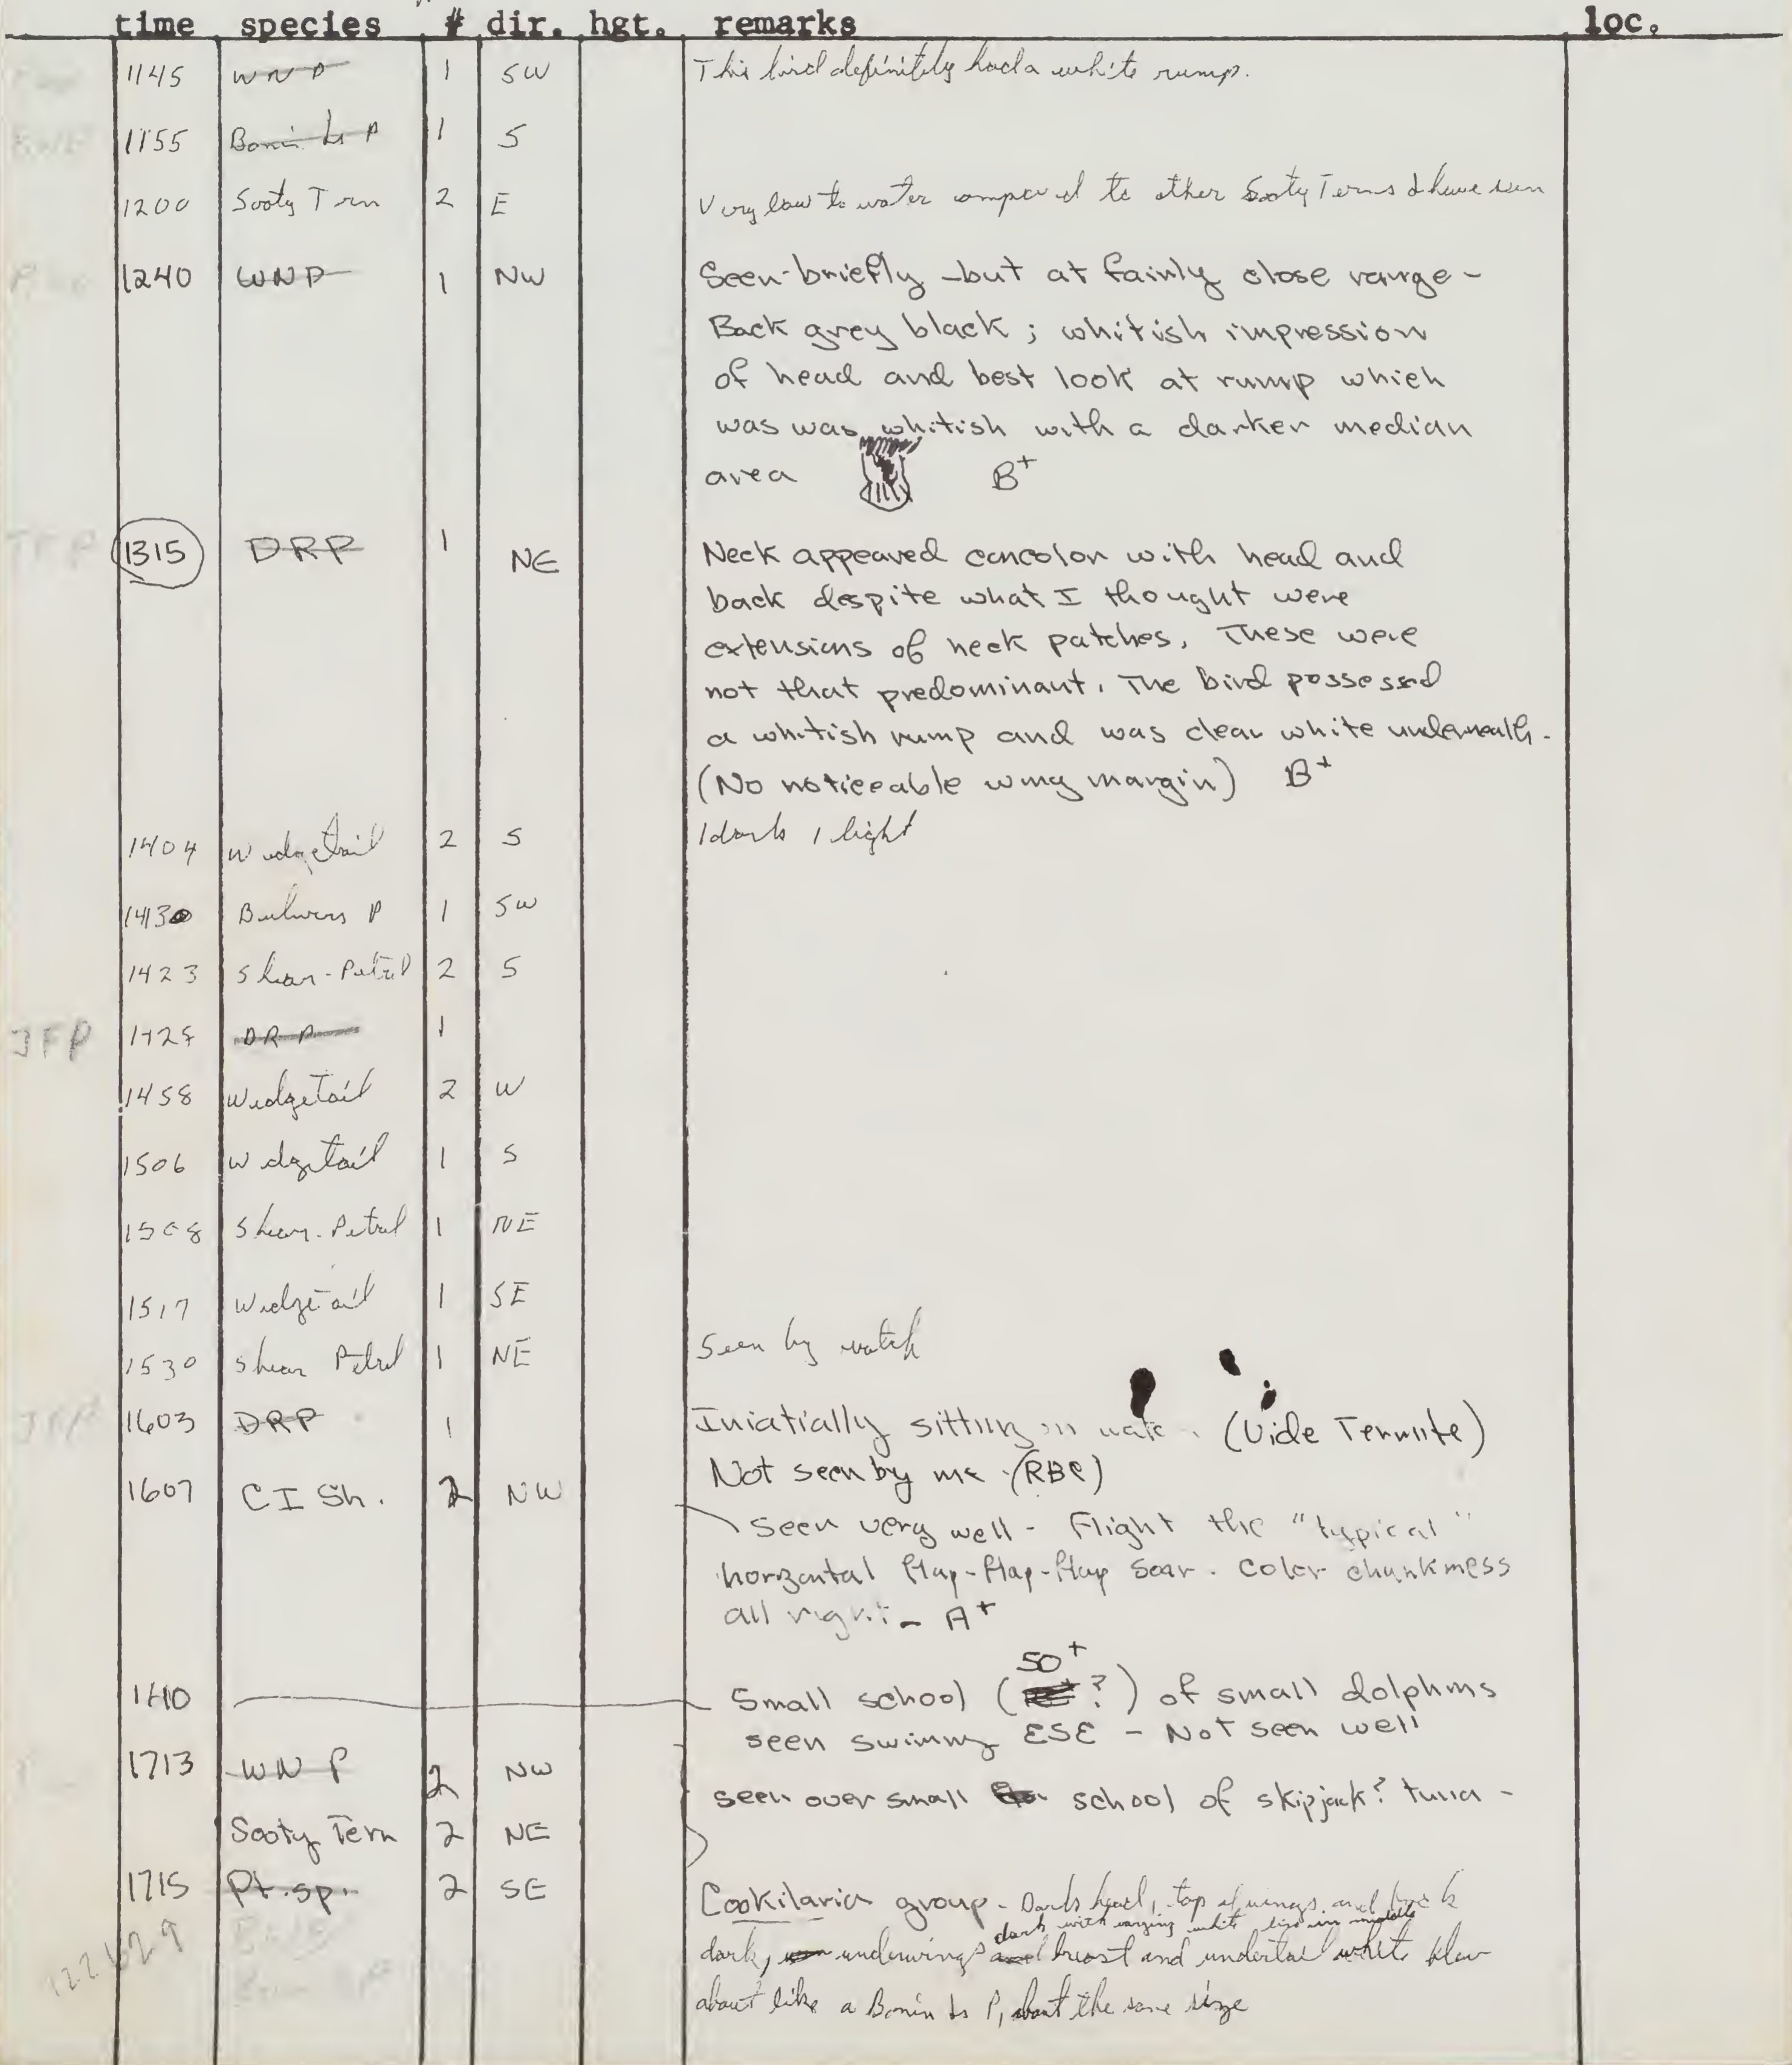 time species # dir. hgt. remarks loc.
1145 WNP 1 SW This bird definitely had a white rump.
1155 Bonin Is P 1 S
1200 Sooty Tern 2 E Very low to water compared to other Sooty Terns I have seen
1240 WNP 1 NW Seen briefly - but at fairly close range -
Back grey black ; whitish impression
of head and best look at rump which
was was whitish with a darker median
area B+
1315 DRP 1 NE Neck appeared concolor with head and
back despite what I thought were
extensions of neck patches. These were
not that predominant. The bird possessed
a whitish rump and was clear white underneath.
(No noticeable wing margin) B+
1404 Wedgetail 2 S 1 dark 1 light
Bulwers P 1 SW
1423 Shear-Petrel 2 S
JFP DRP 1
1458 Wedgetail 2 W
1506 Wedgetail 1 S
1508 Shear-Petrel 1 NE
1517 Wedgetail 1 SE
1530 Shear Petrel 1 NE Seen by watch
1603 DRP 1 Iniatially sitting on water (Vide Termite)
Not seen by me (RBC)
1607 CI Sh. 2 NW
Seen very well - Flight the "typical"
horizontal flap-flap-flap soar. Color chunkiness
all right - A+
50+
1610 Small school ( ?) of small dolphins
seen swimmg ESE - Not seen well
1713 WNP 2 NW
seen over small school of skipjack? tuna -
Sooty Tern 2 NE
1715 Pt. sp. 2 SE Cookilaria group - Dark head, top of wings and back
dark with varying white line in middle
dark, underwings breast and undertail white flew
about like a Bonin Is P, about the same size